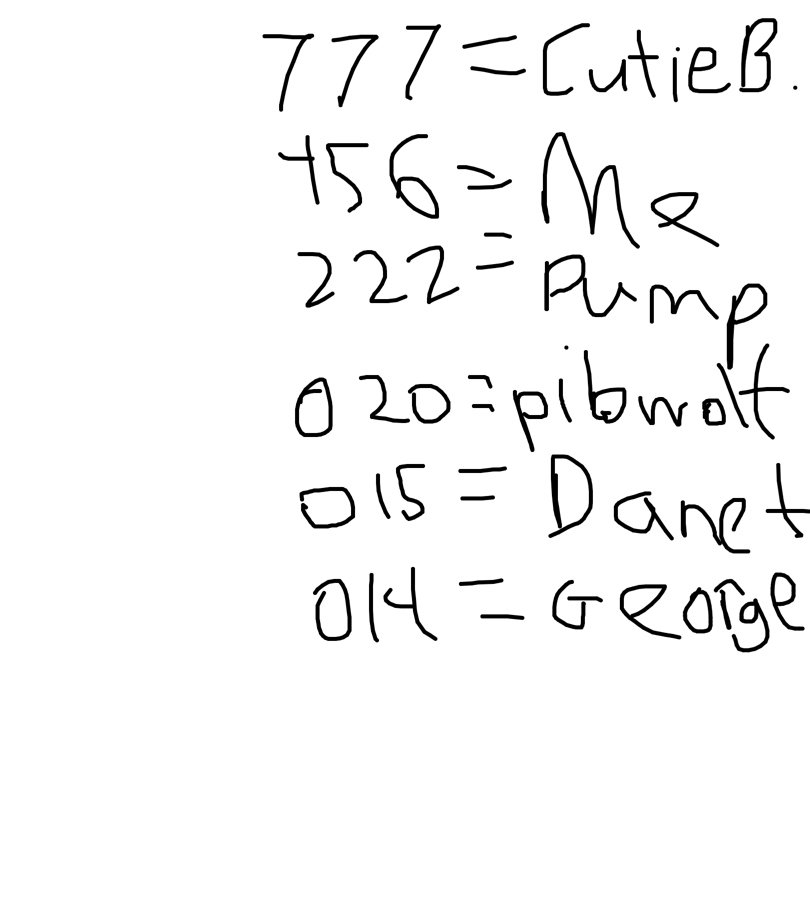 777 = CutieB.
456 = Me
222 = Pump
020 = pibwolt
015 = Danet
014 = George